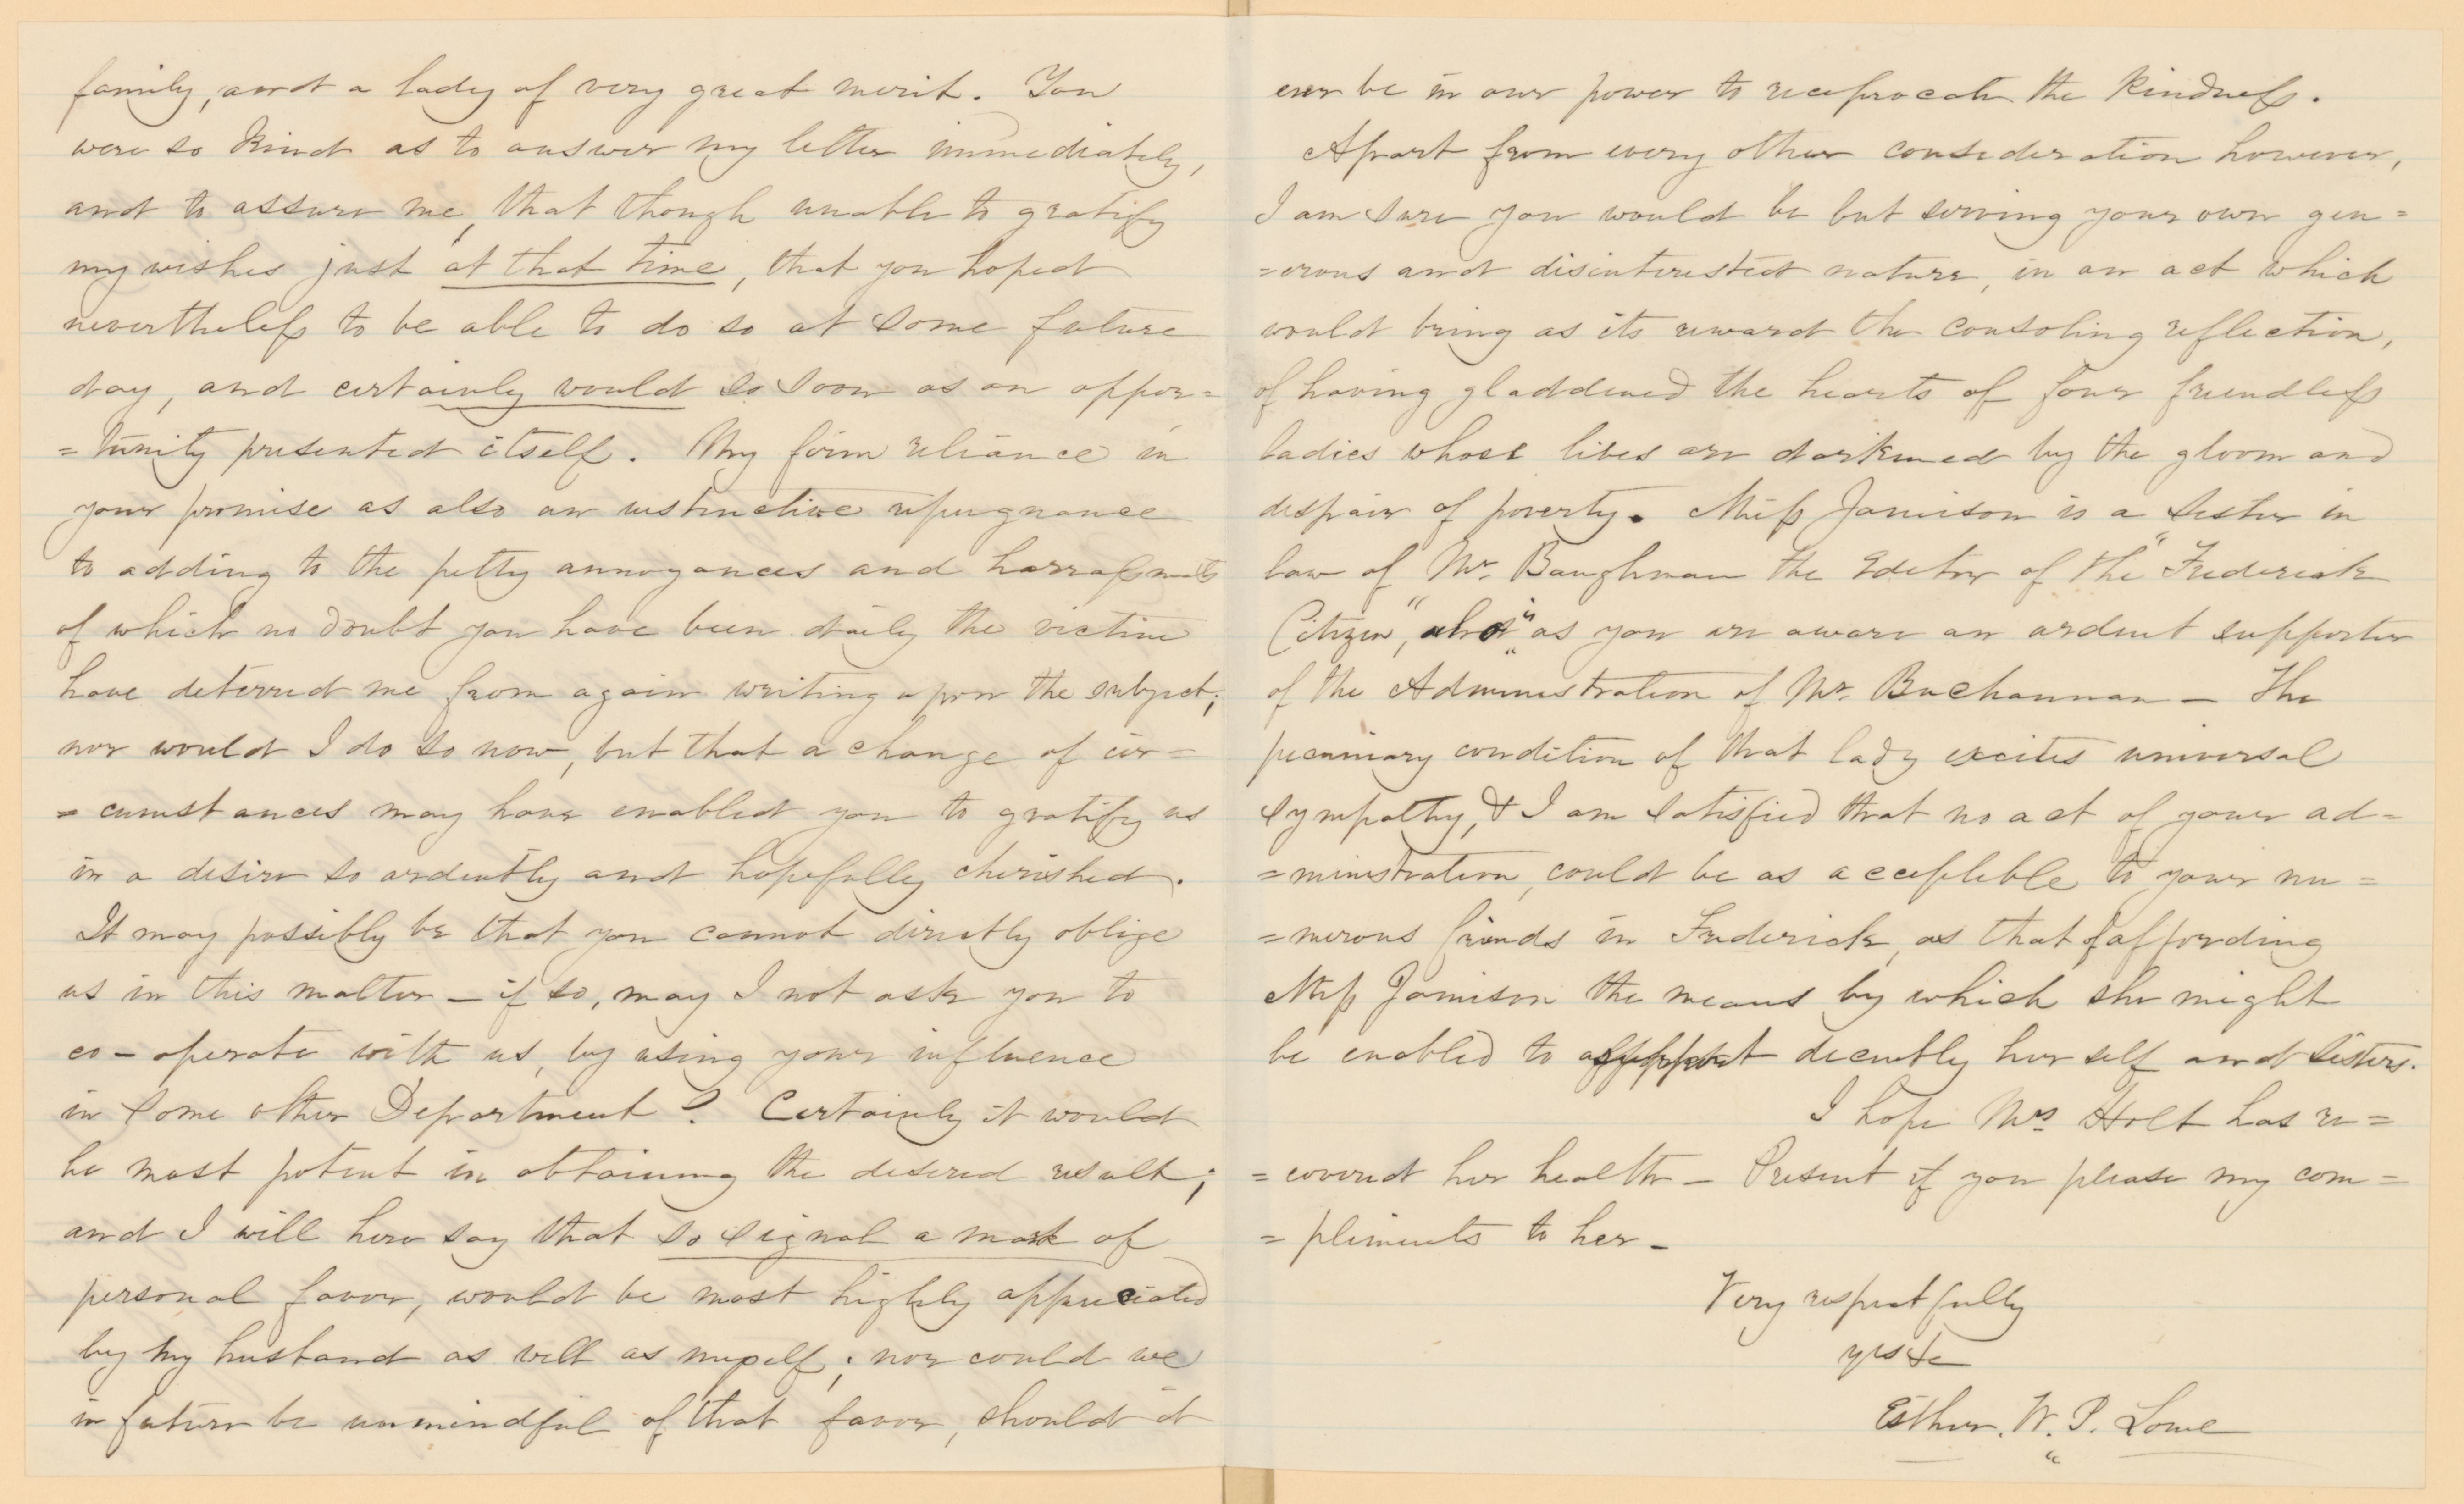 family, and a lady of very great merit. You
were so kind as to answer my letter immediately,
and to assure me, that though unable to gratify
my wishes just at that time, that you hoped
nevertheless to be able to do so at some future
day, and certainly would so soon as an oppor=
=tunity presented itself. My firm reliance in
your promise as also an instinctive repugnance
to adding to the petty annoyances and harrassmts
of which no doubt you have been daily the victim
have deterred me from again writing upon the subject;
nor would I do so now, but that a change of cir=
=cumstances may have enabled you to gratify us
in a desire so ardently and hopefully cherished.
It may possibly be that you cannot directly oblige
us in this matter — if so, may I not ask you to
co-operate with us, by using your influence
in some other Department? Certainly it would
be most potent in obtaining the desired result;
and I will here say that so signal a mark of
personal favor, would be most highly appreciated
by my husband as well as myself; nor could we
in future be unmindful of that favor, should it
ever be in our power to reciprocate the kindness.
Apart from every other consideration however,
I am sure you would be but serving your own gen=
=erous and disinterested nature, in an act which
would bring as its reward the consoling reflection,
of having gladdened the hearts of four friendless
ladies whose lives are darkened by the gloom and
despair of poverty. Miss Jamison is a sister in
law of Mr. Baughman the Editor of the "Frederick
Citizen", who is as you are aware an ardent supporter
of the Administration of Mr. Buchannan — The
pecuniary condition of that lady excites universal
sympathy, & I am satisfied that no act of your ad=
=ministration, could be as acceptible to your nu=
=merous friends in Frederick, as that of affording
Miss Jamison the means by which she might
be enabled to support decently her self and sisters.
I hope Mrs Holt has re=
=covered her health — Present if you please my com=
=pliments to her —
Very respectfully
yrs &c
Esther. W. P. Lowe